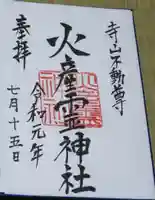 寺山不動尊
奉拝
火産霊神社
令和元年
七月十五日